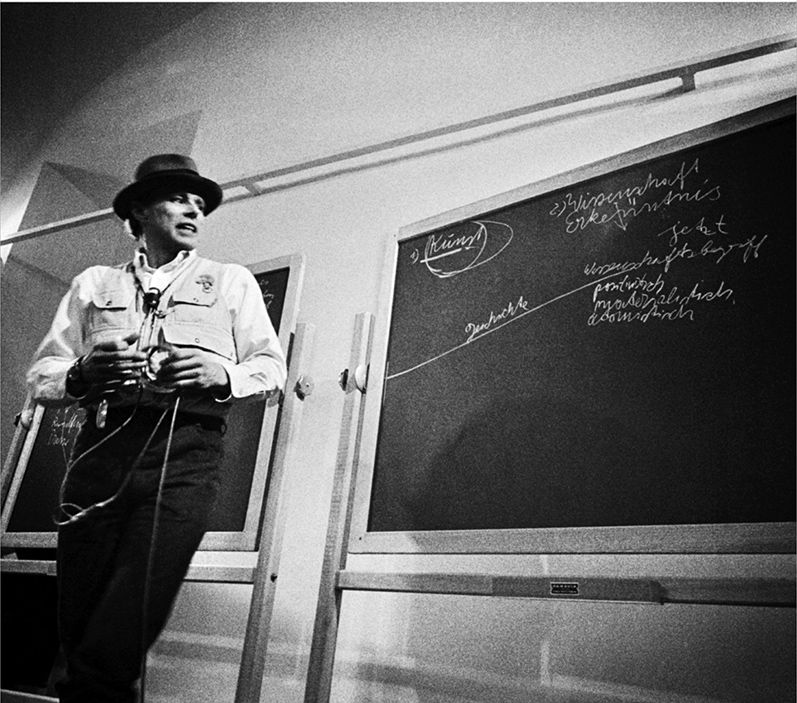 1) Kunst
2) Wissenschaft
Erkenntnis
jetzt
Wissenschaftsbegriff
positivistisch
materialistisch
atomistisch
Geschichte